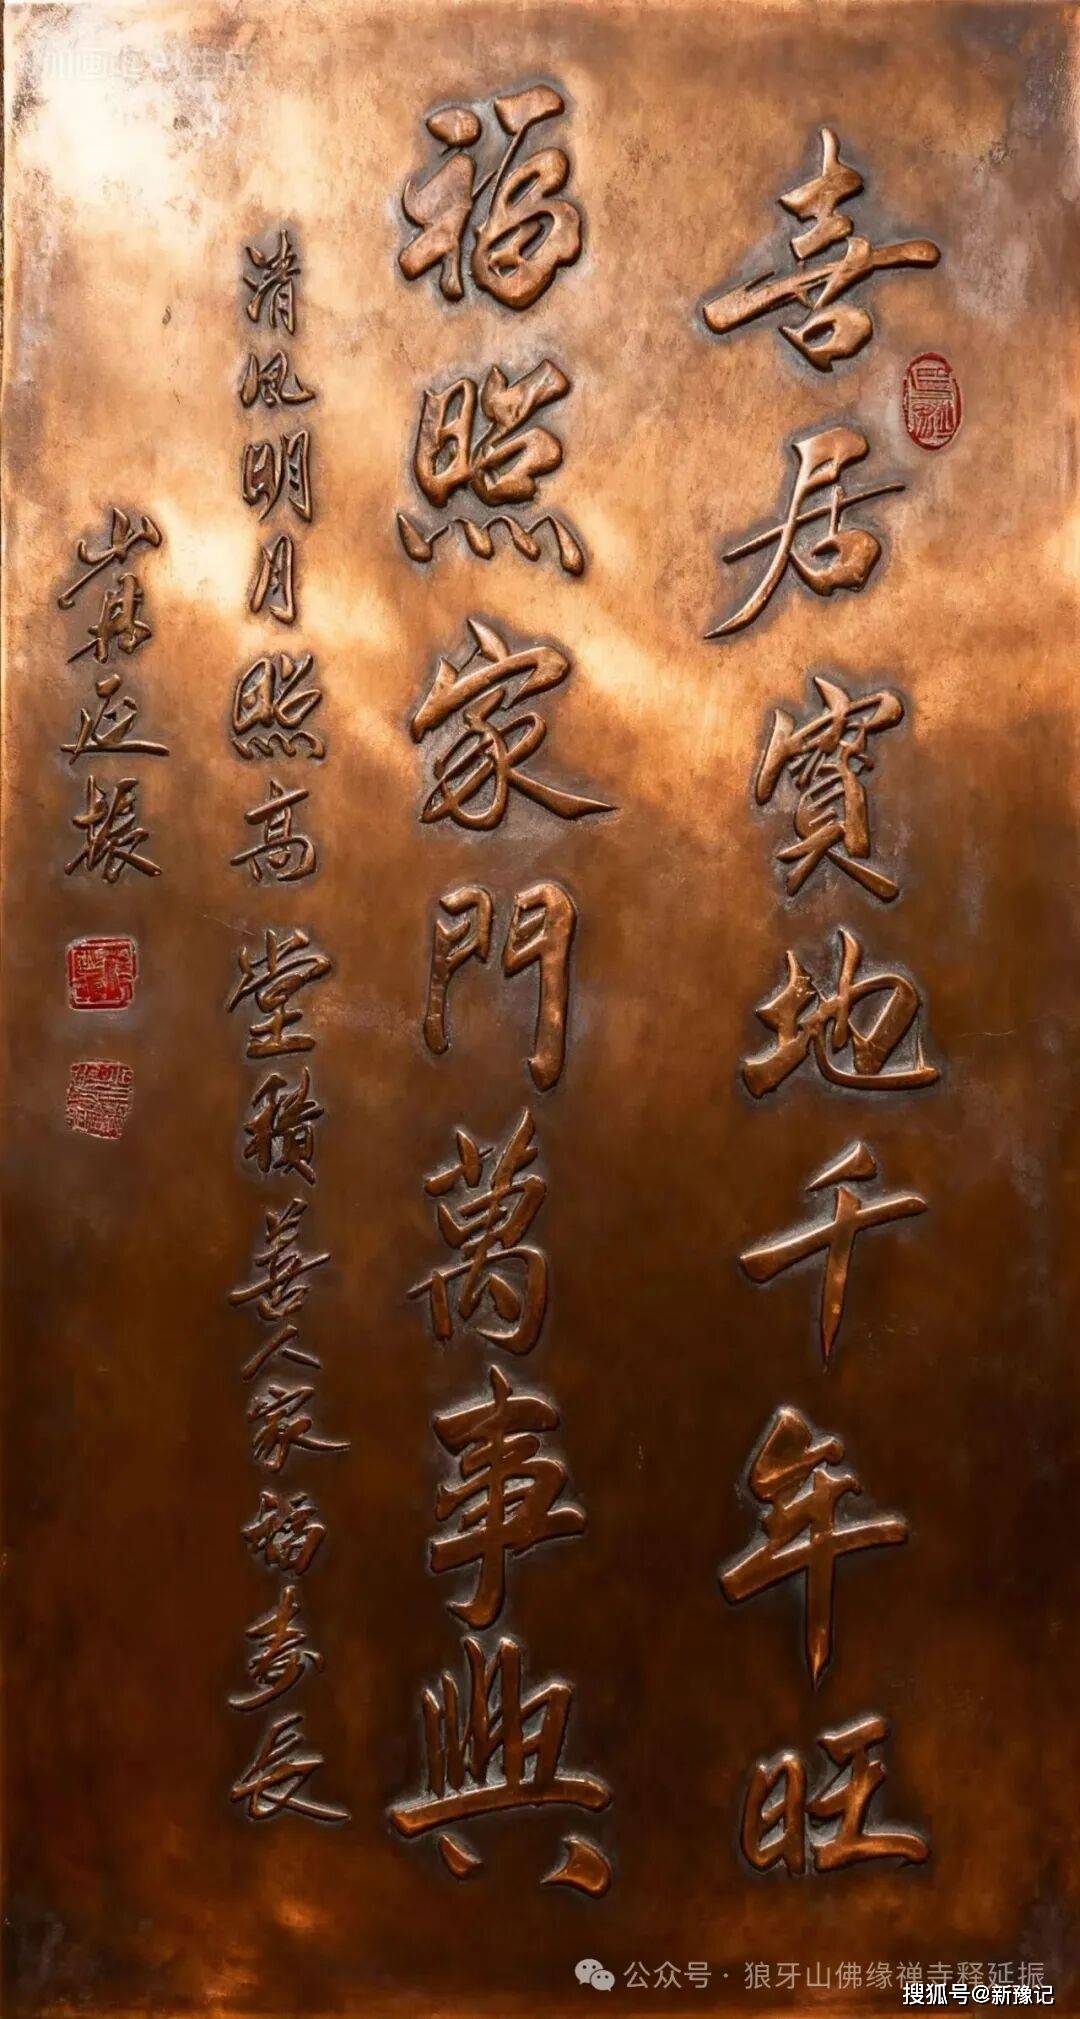 喜居寳地千年旺
福照家門萬事興
清风明月照高堂積善人家福寿長
嵩山延振
公众号·狼牙山佛缘禅寺释延振
搜狐号@新豫记